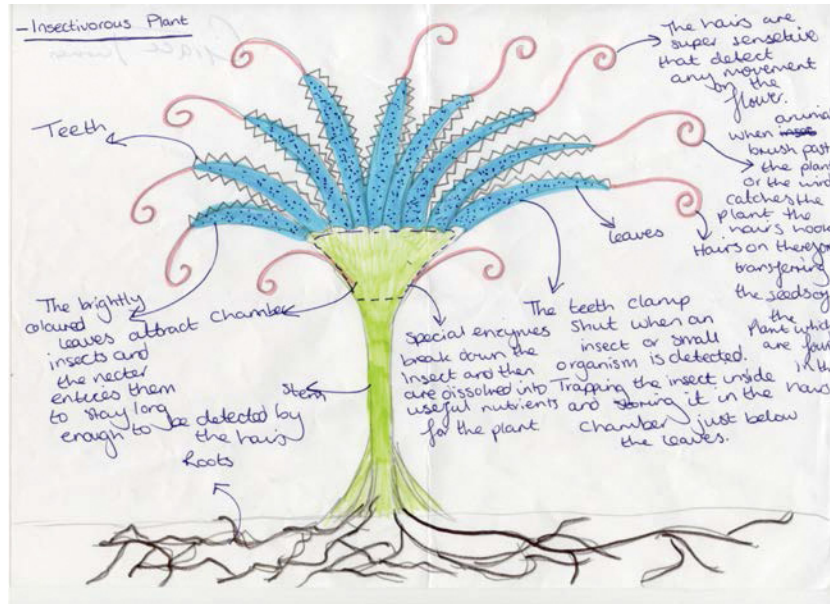 - Insectivorous Plant
The hairs are
super sensetive
that detect
any movement
by the
flower.
animal
when insec
brush past
the plant
or the wind
catches the
plant the
hairs hook
on therefore
transferring
the seeds of
the
Plant which
are found
in the
hairs
Teeth
leaves
Hairs
The brightly
coloured
leaves attract
insects and
the necter
entices them
to stay long
enough to be detected by
the hairs
chamber
Special enzymes
break down the
Insect and then
are dissolved into
useful nutrients
for the plant
The teeth clamp
shut when an
insect or small
organism is detected.
Trapping the insect inside
and storing it in the
chamber just below
the leaves.
stem
Roots